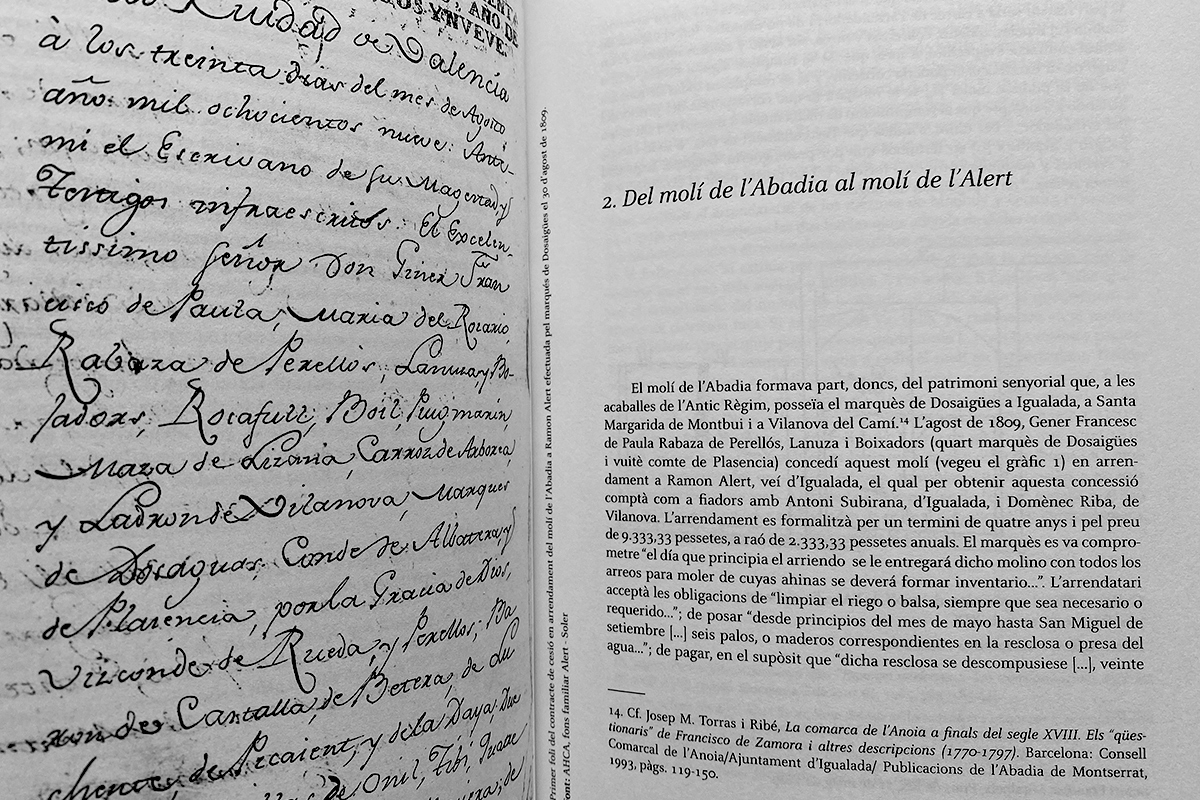 AÑO DE
Y NVEVE.
Ciudad de Valencia
à los treinta dias del mes de Agosto
año mil ochocientos nueve: Ante
mi el Escrivano de su Magestad, y
Testigos infraescritos: El Excelen-
tissimo Señor Don Giner Fran
cisco de Paula, Maria del Rosario,
Rabaza de Perellós, Lanuza, y Bo-
jadors, Rocafull, Boil, Puigmarin,
Maza de Lizana, Carroz de Arborea,
y Ladron de Vilanova, Marques
de Dosaguas, Conde de Albatera, y
de Plasencia, por la Gracia de Dios,
Vizconde de Rueda, y Perellos, Ba
ron de Cantalla, de Betera, de
de Picaient, y de la Daya, Due
de Onil, Tibi,
Primer foli del contracte de cesió en arrendament del molí de l'Abadia a Ramon Alert efectuada pel marquès de Dosaigües el 30 d'agost de 1809.
Font: AHCA, fons familiar Alert - Soler
2. Del molí de l'Abadia al molí de l'Alert
El molí de l'Abadia formava part, doncs, del patrimoni senyorial que, a les
acaballes de l'Antic Règim, posseïa el marquès de Dosaigües a Igualada, a Santa
Margarida de Montbui i a Vilanova del Camí.14 L'agost de 1809, Gener Francesc
de Paula Rabaza de Perellós, Lanuza i Boixadors (quart marquès de Dosaigües
i vuitè comte de Plasencia) concedí aquest molí (vegeu el gràfic 1) en arren-
dament a Ramon Alert, veí d'Igualada, el qual per obtenir aquesta concessió
comptà com a fiadors amb Antoni Subirana, d'Igualada, i Domènec Riba, de
Vilanova. L'arrendament es formalitzà per un termini de quatre anys i pel preu
de 9.333,33 pessetes, a raó de 2.333,33 pessetes anuals. El marquès es va compro-
metre "el día que principia el arriendo se le entregará dicho molino con todos los
arreos para moler de cuyas ahinas se deverá formar inventario...". L'arrendatari
acceptà les obligacions de "limpiar el riego o balsa, siempre que sea necesario o
requerido..."; de posar "desde principios del mes de mayo hasta San Miguel de
setiembre [...] seis palos, o maderos correspondientes en la resclosa o presa del
agua..."; de pagar, en el supòsit que "dicha resclosa se descompusiese [...], veinte
14. Cf. Josep M. Torras i Ribé, La comarca de l'Anoia a finals del segle XVIII. Els "qües-
tionaris" de Francisco de Zamora i altres descripcions (1770-1797). Barcelona: Consell
Comarcal de l'Anoia/Ajuntament d'Igualada/ Publicacions de l'Abadia de Montserrat,
1993, pàgs. 119-150.